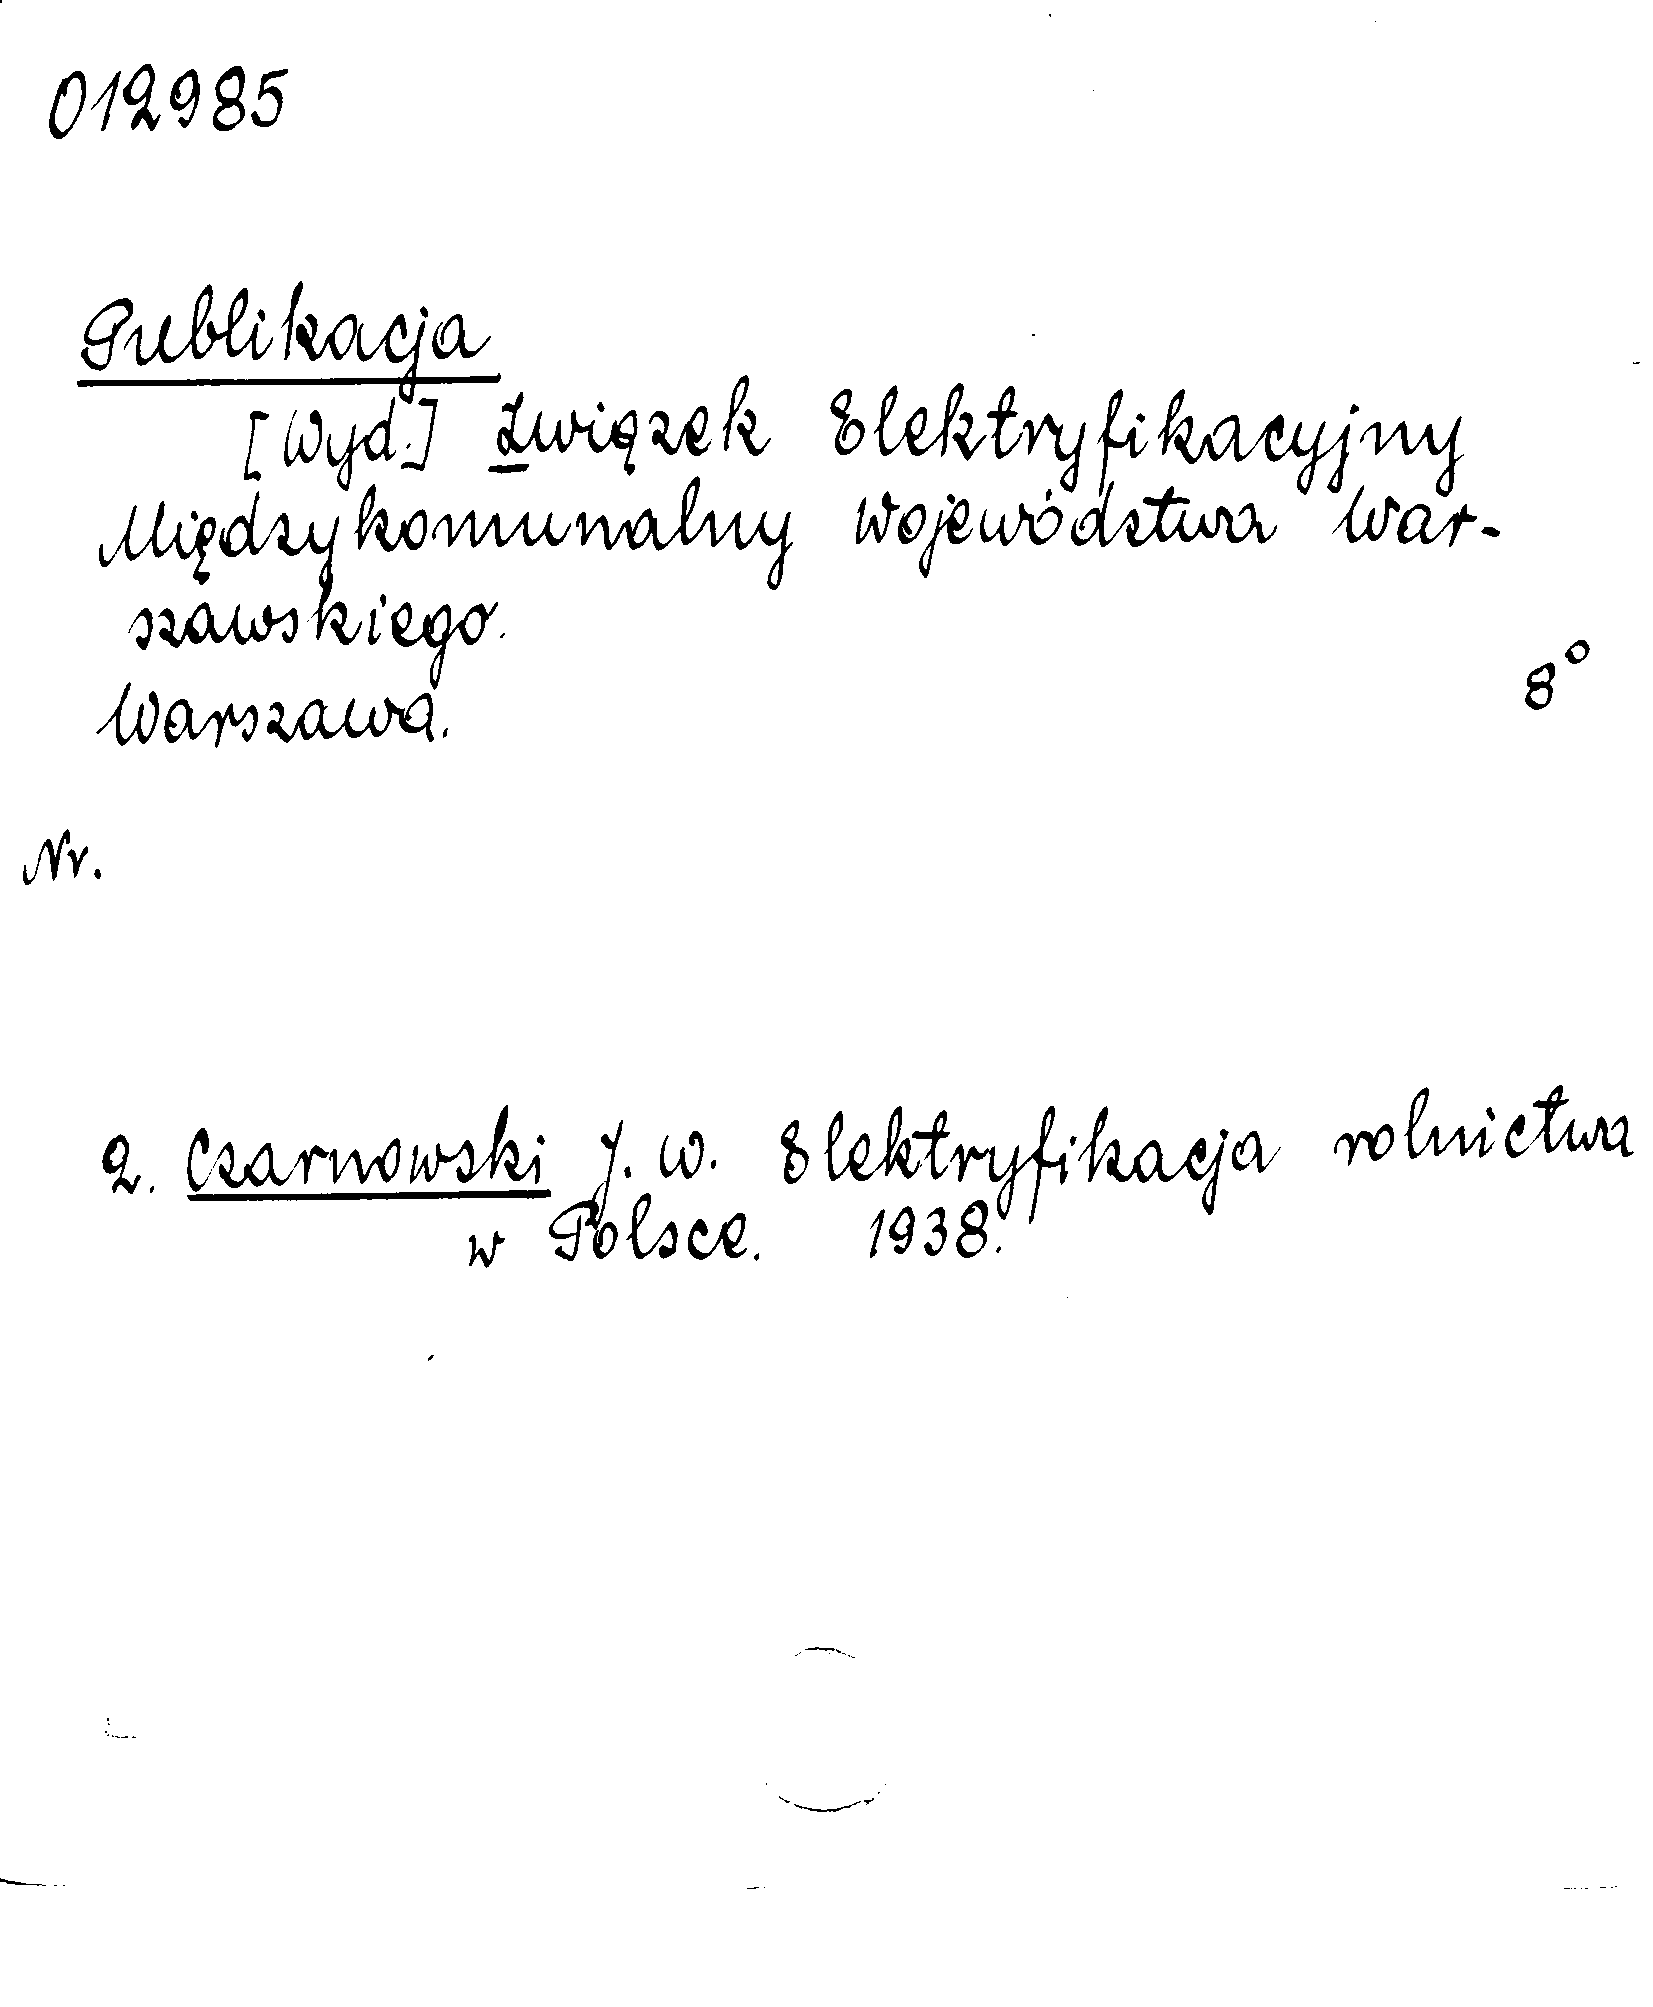 012985
Publikacja
[Wyd.] Związek Elektryfikacyjny
Międzykomunalny Województwa War-
szawskiego.
8°
Warszawa.
Nr.
2. Czarnowski J. W. Elektryfikacja rolnictwa
w Polsce. 1938.